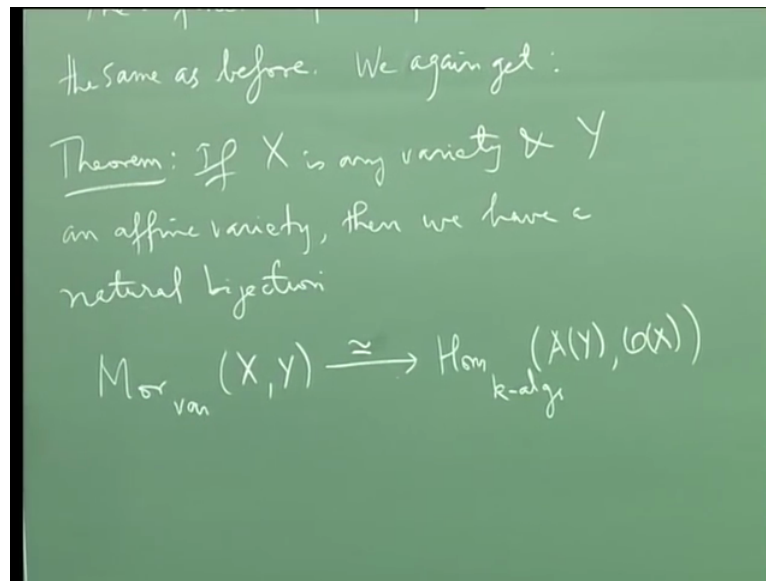 the same as before. We again get :
Theorem : If X is any variety & Y
an affine variety, then we have a
natural bijection
Mor_var (X, Y) ≅⟶ Hom_k-algs (A(Y), O(X))